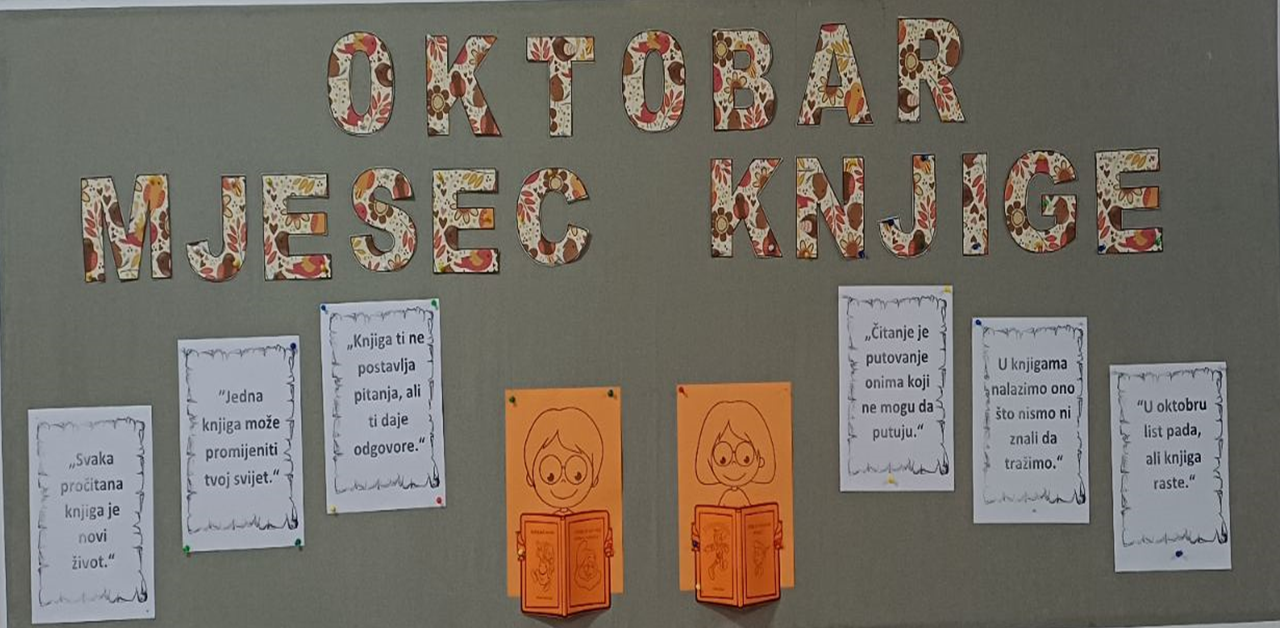 OKTOBAR
MJESEC KNJIGE
„Svaka
pročitana
knjiga je
novi
život.“
“Jedna
knjiga može
promijeniti
tvoj svijet.“
„Knjiga ti ne
postavlja
pitanja, ali
ti daje
odgovore.“
„Čitanje je
putovanje
onima koji
ne mogu da
putuju.“
U knjigama
nalazimo ono
što nismo ni
znali da
tražimo.“
“U oktobru
list pada,
ali knjiga
raste.“